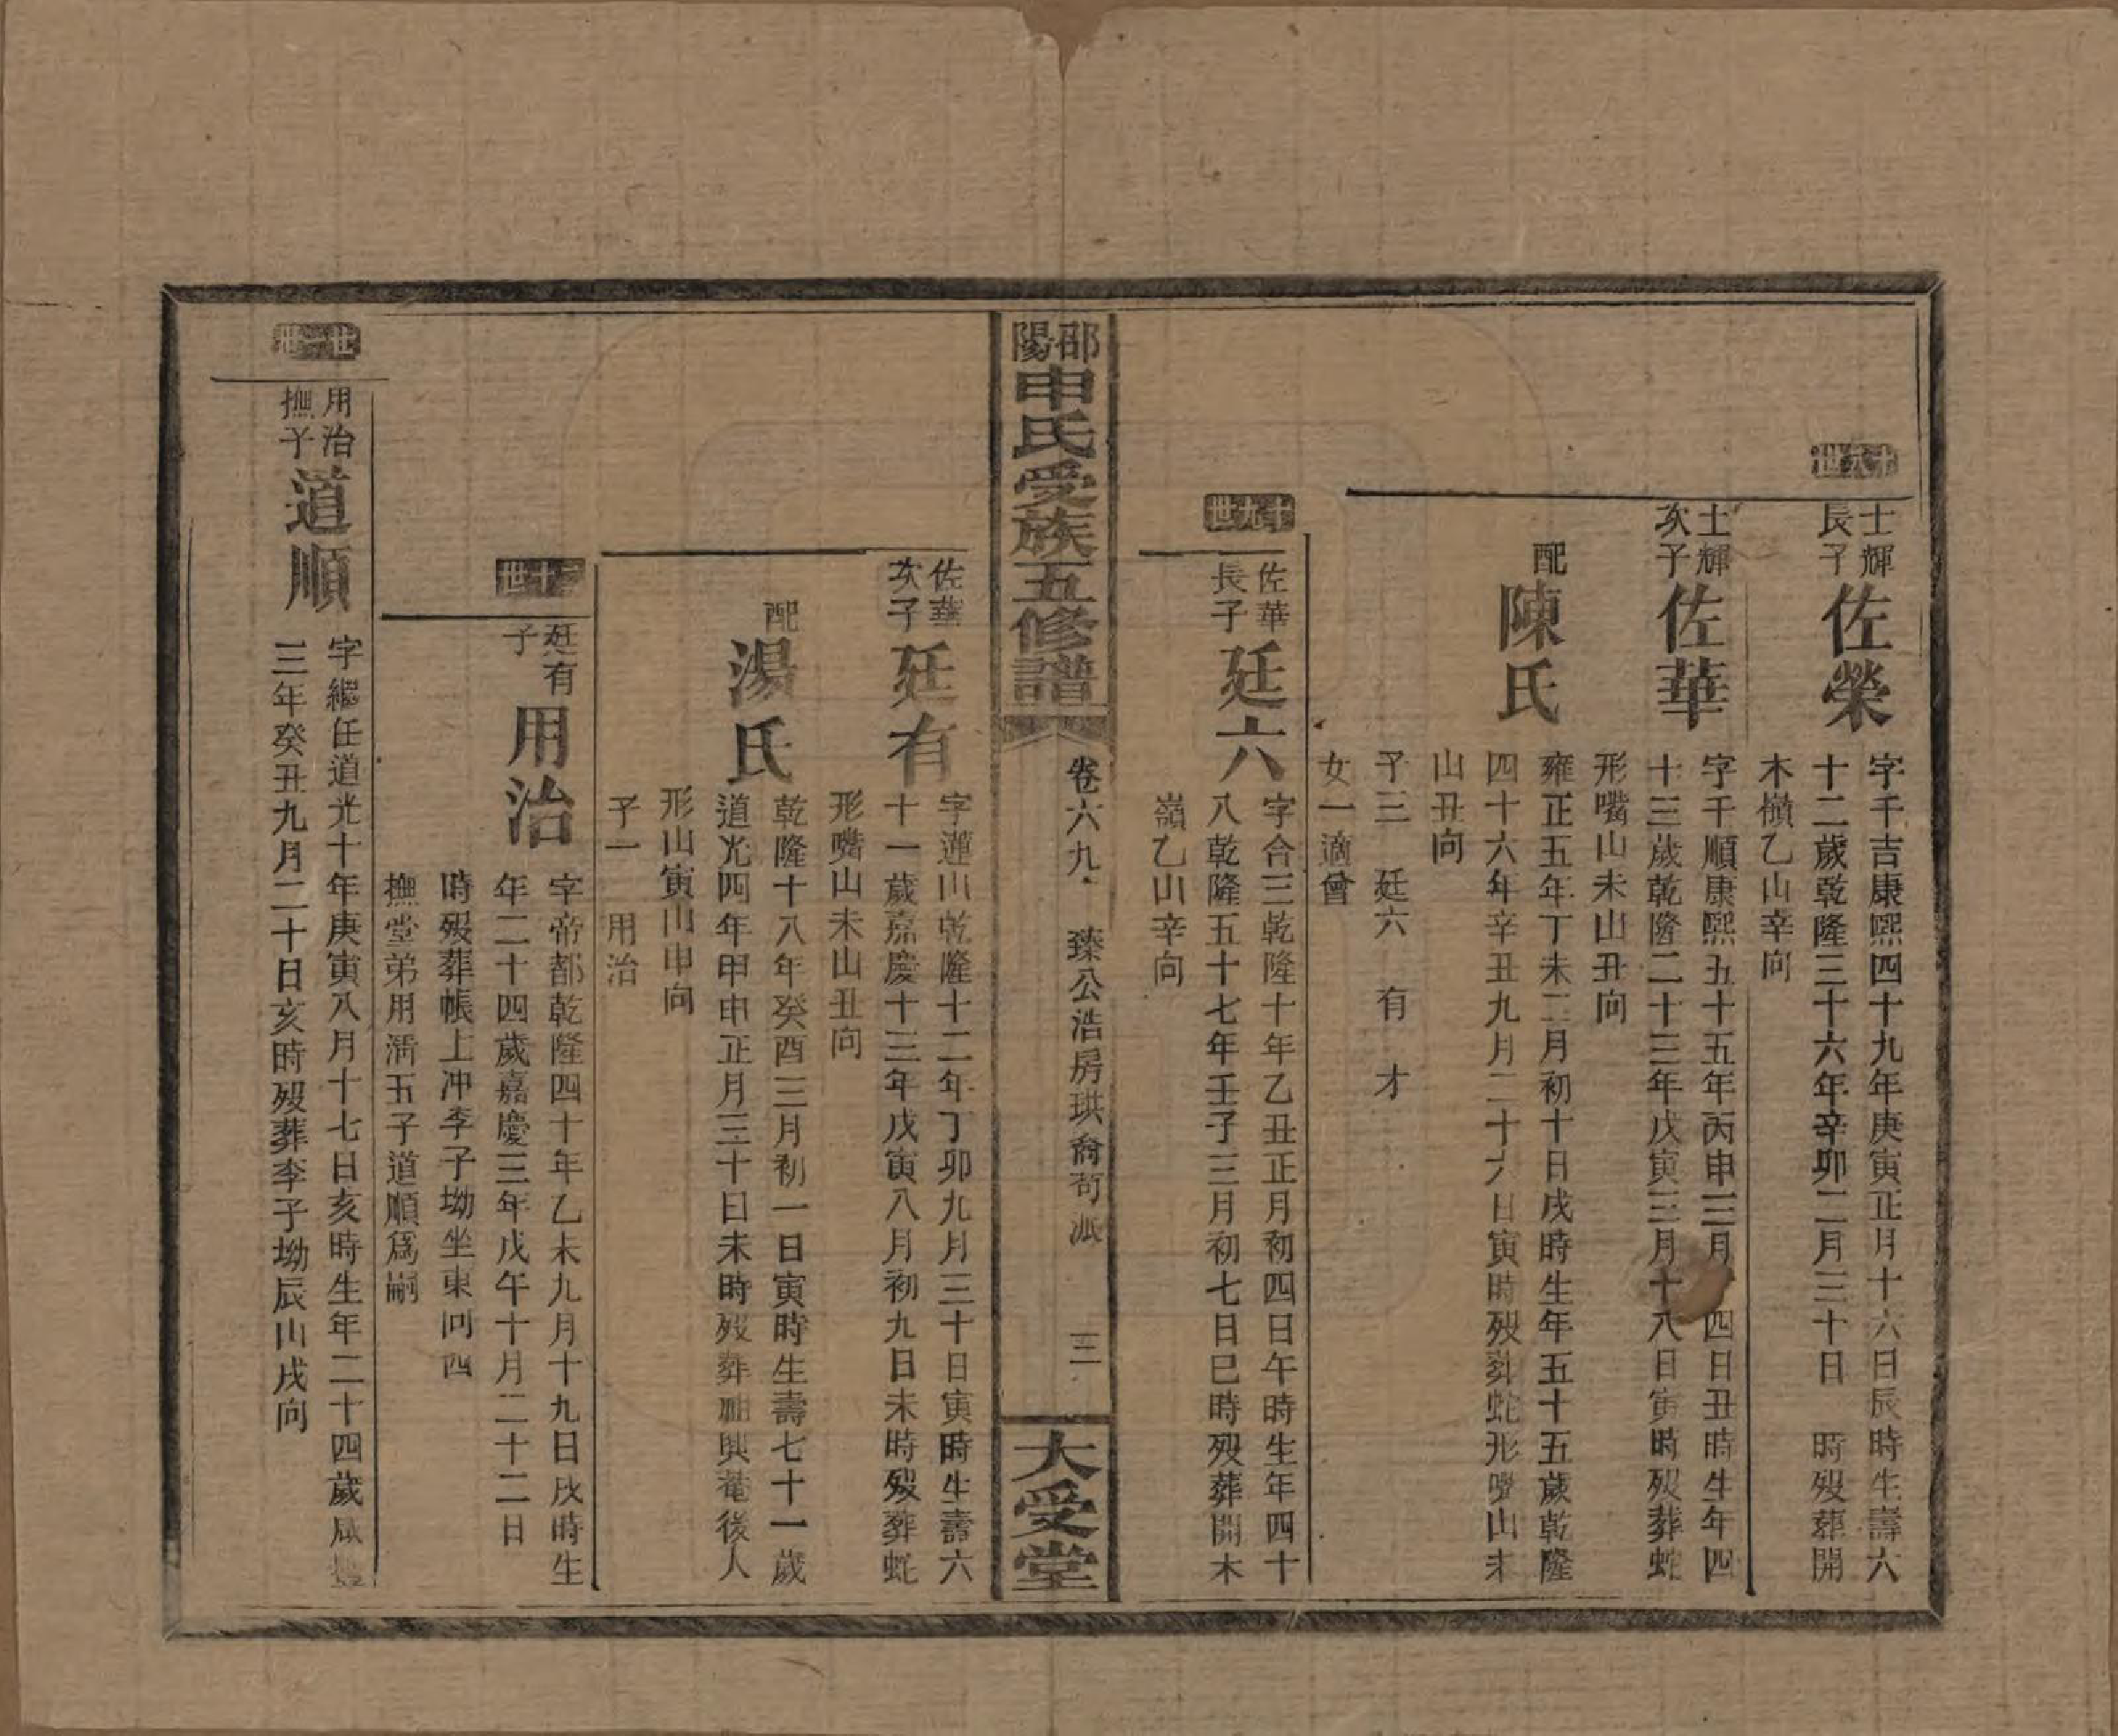 十八世
士輝
長子
佐榮
字千吉康熙四十九年庚寅正月十六日辰時生壽六
十二歲乾隆三十六年辛卯二月三十日 時歿葬開
木嶺乙山辛向
士輝
次子
佐華
字千順康熙五十五年丙申三月 四日丑時生年四
十三歲乾隆二十三年戊寅三月十八日寅時歿葬蛇
形嘴山未山丑向
配
陳氏
雍正五年丁未二月初十日戌時生年五十五歲乾隆
四十六年辛丑九月二十六日寅時歿葬蛇形嘴山未
山丑向
子三 廷六 有 才
女一適曾
十九世
佐華
長子
廷六
字合三乾隆十年乙丑正月初四日午時生年四十
八乾隆五十七年壬子三月初七日巳時歿葬開木
嶺乙山辛向
邵陽
申氏受族五修譜
卷六九
臻公浩房珙裔苟派
三
大受堂
佐華
次子
廷有
字蓮山乾隆十二年丁卯九月三十日寅時生壽六
十一歲嘉慶十三年戊寅八月初九日未時歿葬蛇
形嘴山未山丑向
配
湯氏
乾隆十八年癸酉三月初一日寅時生壽七十一歲
道光四年甲申正月三十日未時歿葬 興菴後人
形山寅山申向
子一 用治
二十世
廷有
子
用治
字帝都乾隆四十年乙未九月十九日戌時生
年二十四歲嘉慶三年戊午十月二十二日
時歿葬帳上冲李子坳坐東向西
撫堂弟用清五子道順爲嗣
廿一世
用治
撫子
道順
字繼任道光十年庚寅八月十七日亥時生年二十四歲咸豐
三年癸丑九月二十日亥時歿葬李子坳辰山戌向